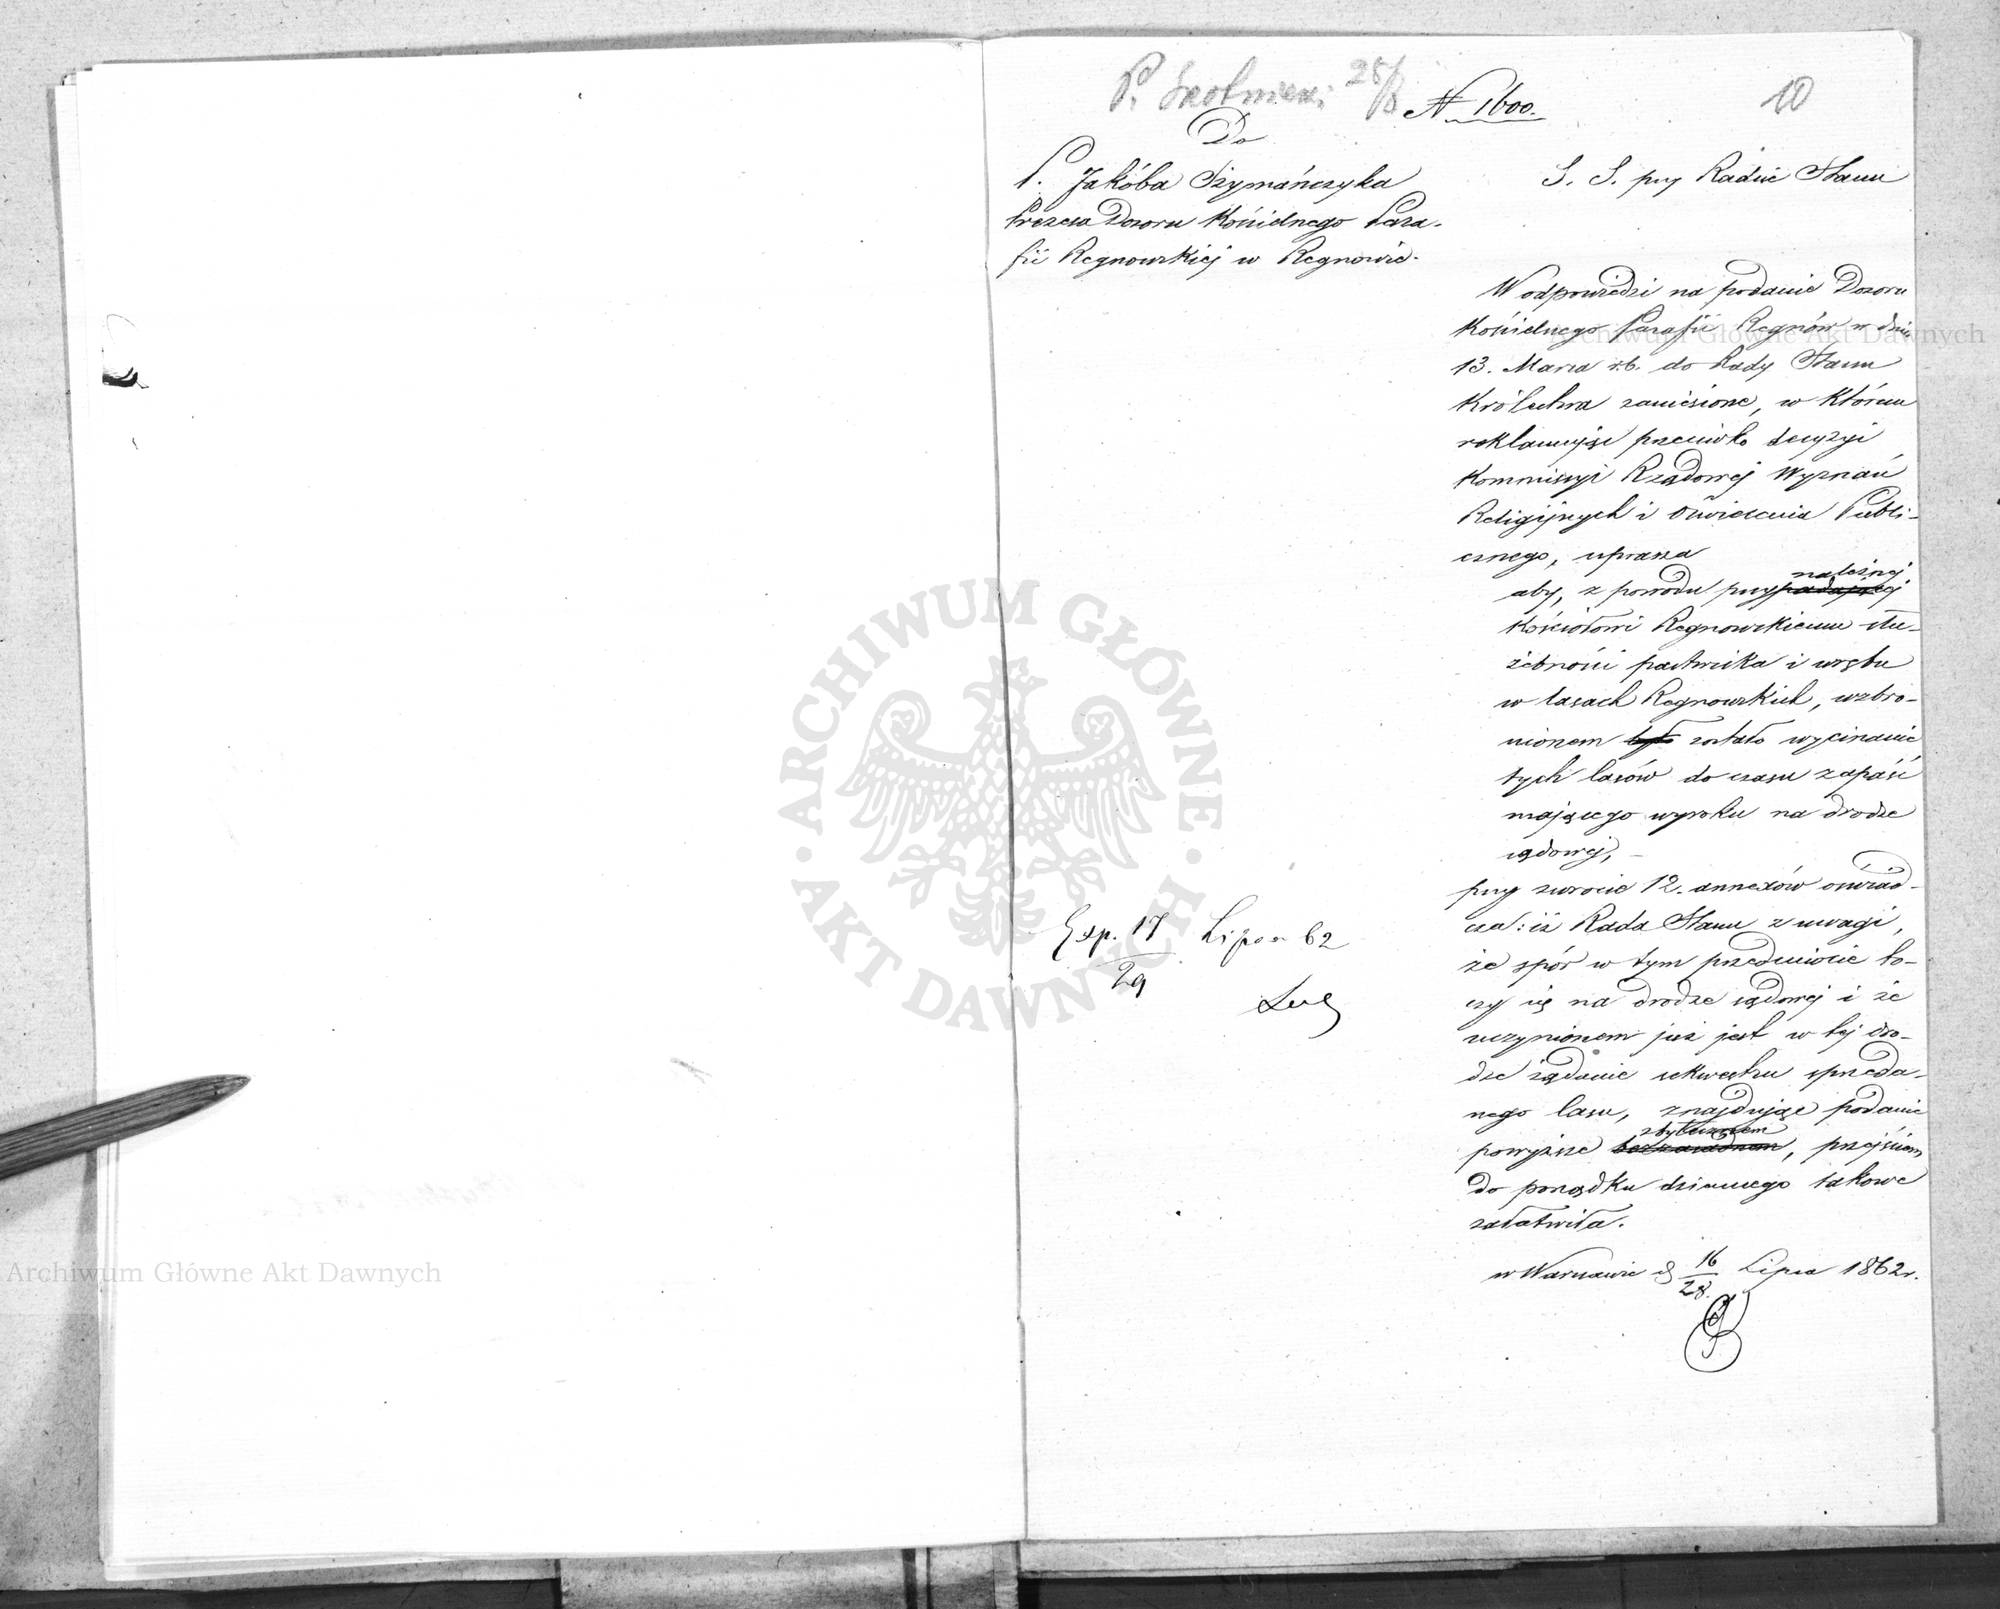 P. 28/8 N 1600. 10
Do
P. Jakóba Szymańczyka
Prezesa Dozoru Kościelnego Para-
fii Regnowskiej w Regnowie.
S. S. przy Radzie Stanu
W odpowiedzi na podanie Dozoru
Kościelnego Parafii Regnów w dniu
13. Marca r.b. do Rady Stanu
Królestwa zaniesione, w którem
reklamując przeciwko decyzyi
Kommissyi Rządowej Wyznań
Religijnych i Oświecenia Publi-
cznego, uprasza
aby, z powodu przynależnej
padającej
Kościołowi Regnowskiemu słu-
żebności pastwiska i wrębu
w lasach Regnowskich, wzbro-
nionem było zostało wycinanie
tych lasów do czasu zapaść
mającego wyroku na drodze
sądowej, —
przy zwrocie 12. annexów oświad-
cza: iż Rada Stanu z uwagi,
że spór w tym przedmiocie to-
czy się na drodze sądowej i że
uczynionem już jest w tej dro-
dze żądanie sekwestru sprzeda-
nego lasu, znajdując podanie
zbytecznem
powyższe bezzasadnem, przejściem
do porządku dziennego takowe
załatwiła.
w Warszawie d 16/28. Lipca 1862 r.
Exp. 17/29 Lipca 62
Archiwum Główne Akt Dawnych
Archiwum Główne Akt Dawnych
ARCHIWUM GŁÓWNE
AKT DAWNYCH